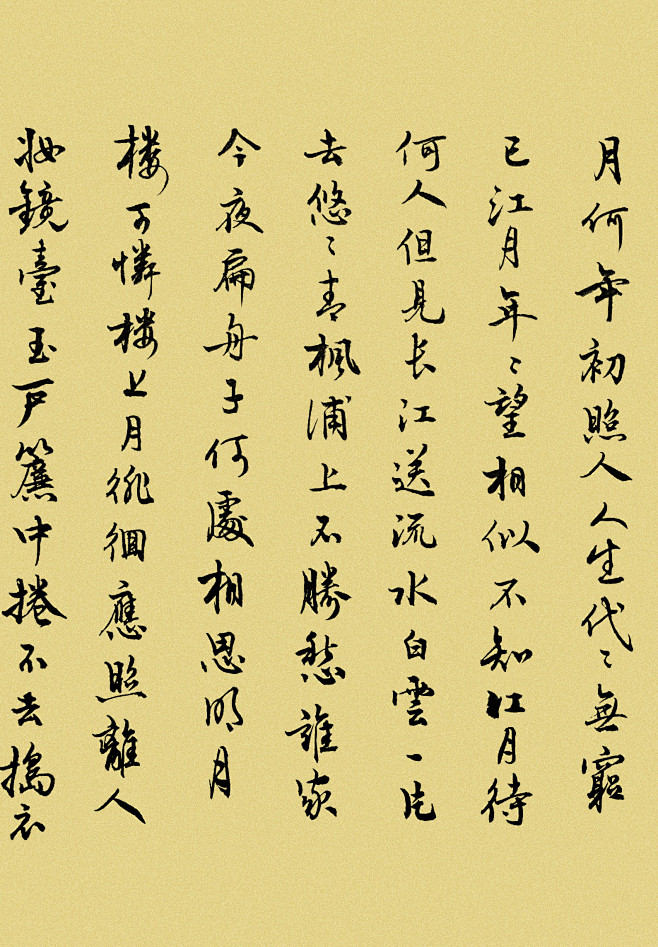 月何年初照人人生代〻無窮
已江月年〻望相似不知江月待
何人但見长江送流水白雲一片
去悠〻青楓浦上不勝愁誰家
今夜扁舟子何處相思明月
楼可憐楼上月徘徊應照離人
妝鏡臺玉戶簾中捲不去搗衣